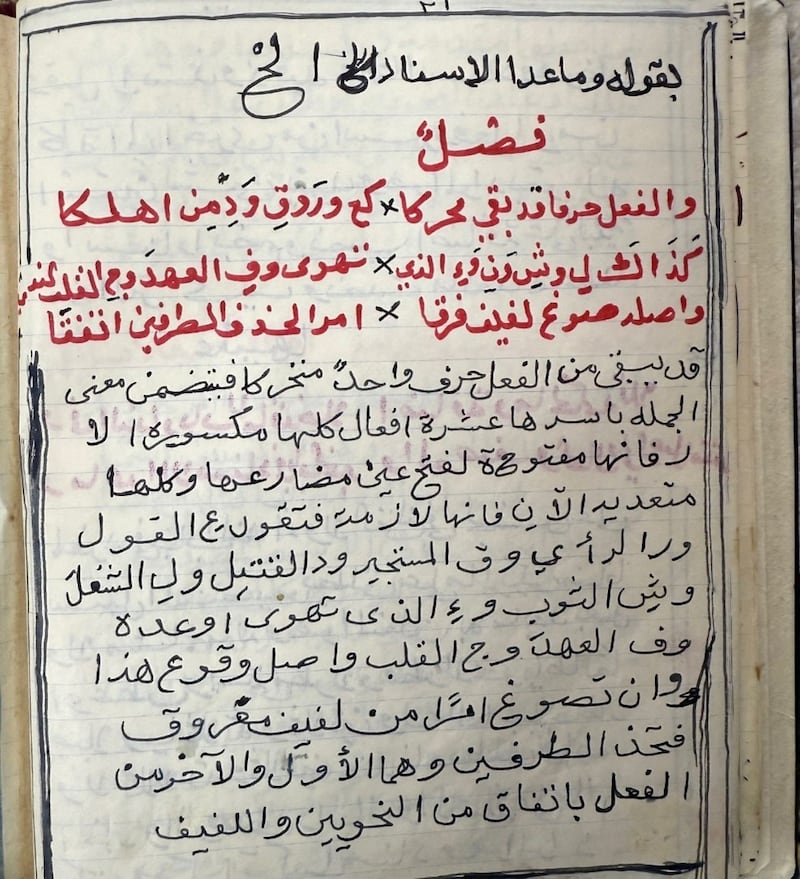 ٢١
بقوله وما عدا الاسناد الخ
فصلٌ
والفعل حرفا قد بقي محركا × كع ورَ وقِ وَدِ مِن اهلكا
كَذَاكَ لِ وشِ وَنِ وَءِ الذي × تهوى وفِ العهدَ وجِ القلب
واصله صوغ لفيف فرقا × امر الحذف الطرفين اتفقا
قد يبقى من الفعل حرف واحدٌ متحركا فيتضمن معنى
الجمله باسرها عشرة افعال كلها مكسورة الا
رفانها مفتوحة لفتح عين مضارعها وكلها
متعديه الآن فانها لازمة فتقول ع القول
ورا لرأي وق المستجير ود القتيل ولِ الشغلَ
وشِ الثوب وءِ الذى تهوى اوعده
وف العهدَ وج القلب واصل وقوع هذا
وان تصوغ امرًا من لفيف مفروق
فتحذ الطرفين وهما الأول والآخر من
الفعل باتفاق من النحويين واللفيف